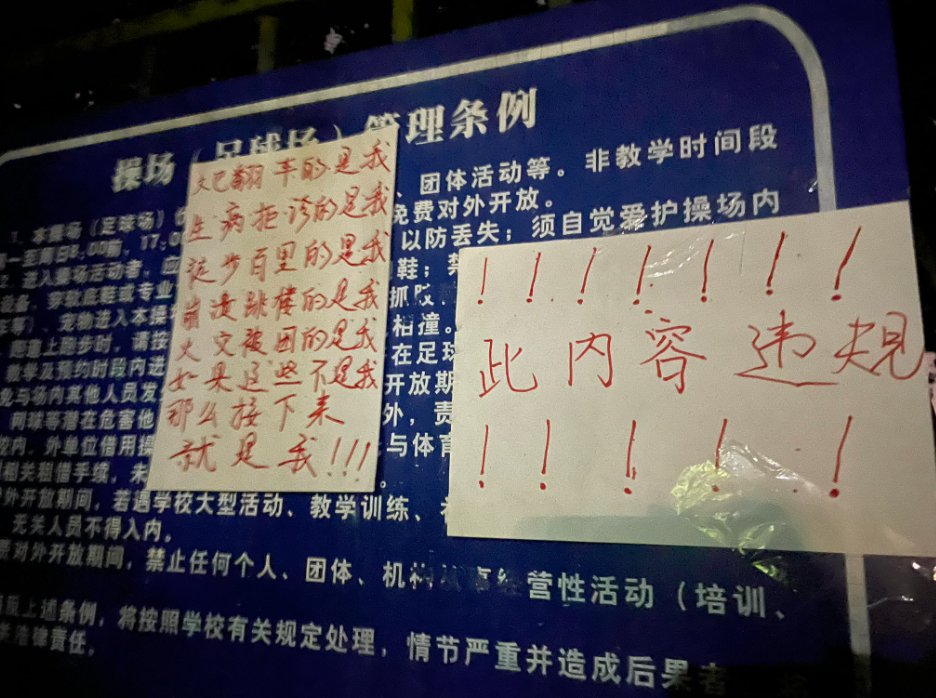 操场（足球场）管理条例
大巴翻车的是我
生病拒诊的是我
徒步百里的是我
崩溃跳楼的是我
火灾被困的是我
如果这些不是我
那么接下来
就是我!!!
!!!!!!!
此内容违规
!!!!!
1、本操场（足球场）
、团体活动等。非教学时间段
免费对外开放。
2、进入操场活动者，应
以防丢失；须自觉爱护操场内
穿软底鞋或专业
鞋；禁
宠物进入本操
相撞。
跑道上跑步时，请按
在足球
教学及预约时段内进
开放期
免与场内其他人员发
外，责
网球等潜在危害他
校内、外单位借用操
与体育
相关租借手续，未
。
外开放期间，若遇学校大型活动、教学训练、
无关人员不得入内。
对外开放期间，禁止任何个人、团体、机构从事经营性活动（培训、
上述条例，将按照学校有关规定处理，情节严重并造成后果者
法律责任。